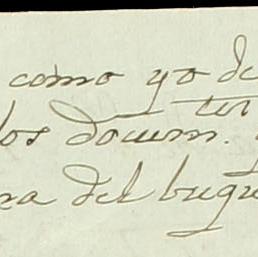 como yo de
los docum.tos
na del buque